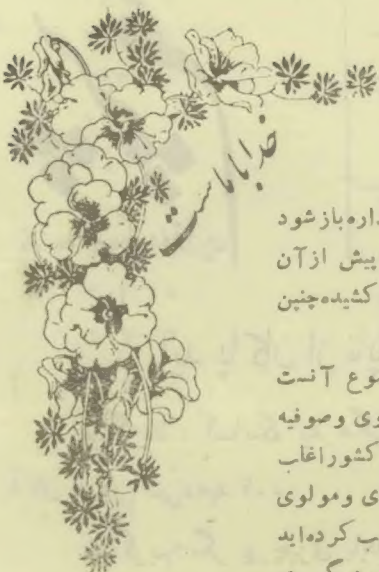 خدا با ماست
داره باز شود
پیش از آن
کشیده چنین
وع آنست
وی وصوفیه
کشور اغاب
ی ومولوی
ب کرده‌اید